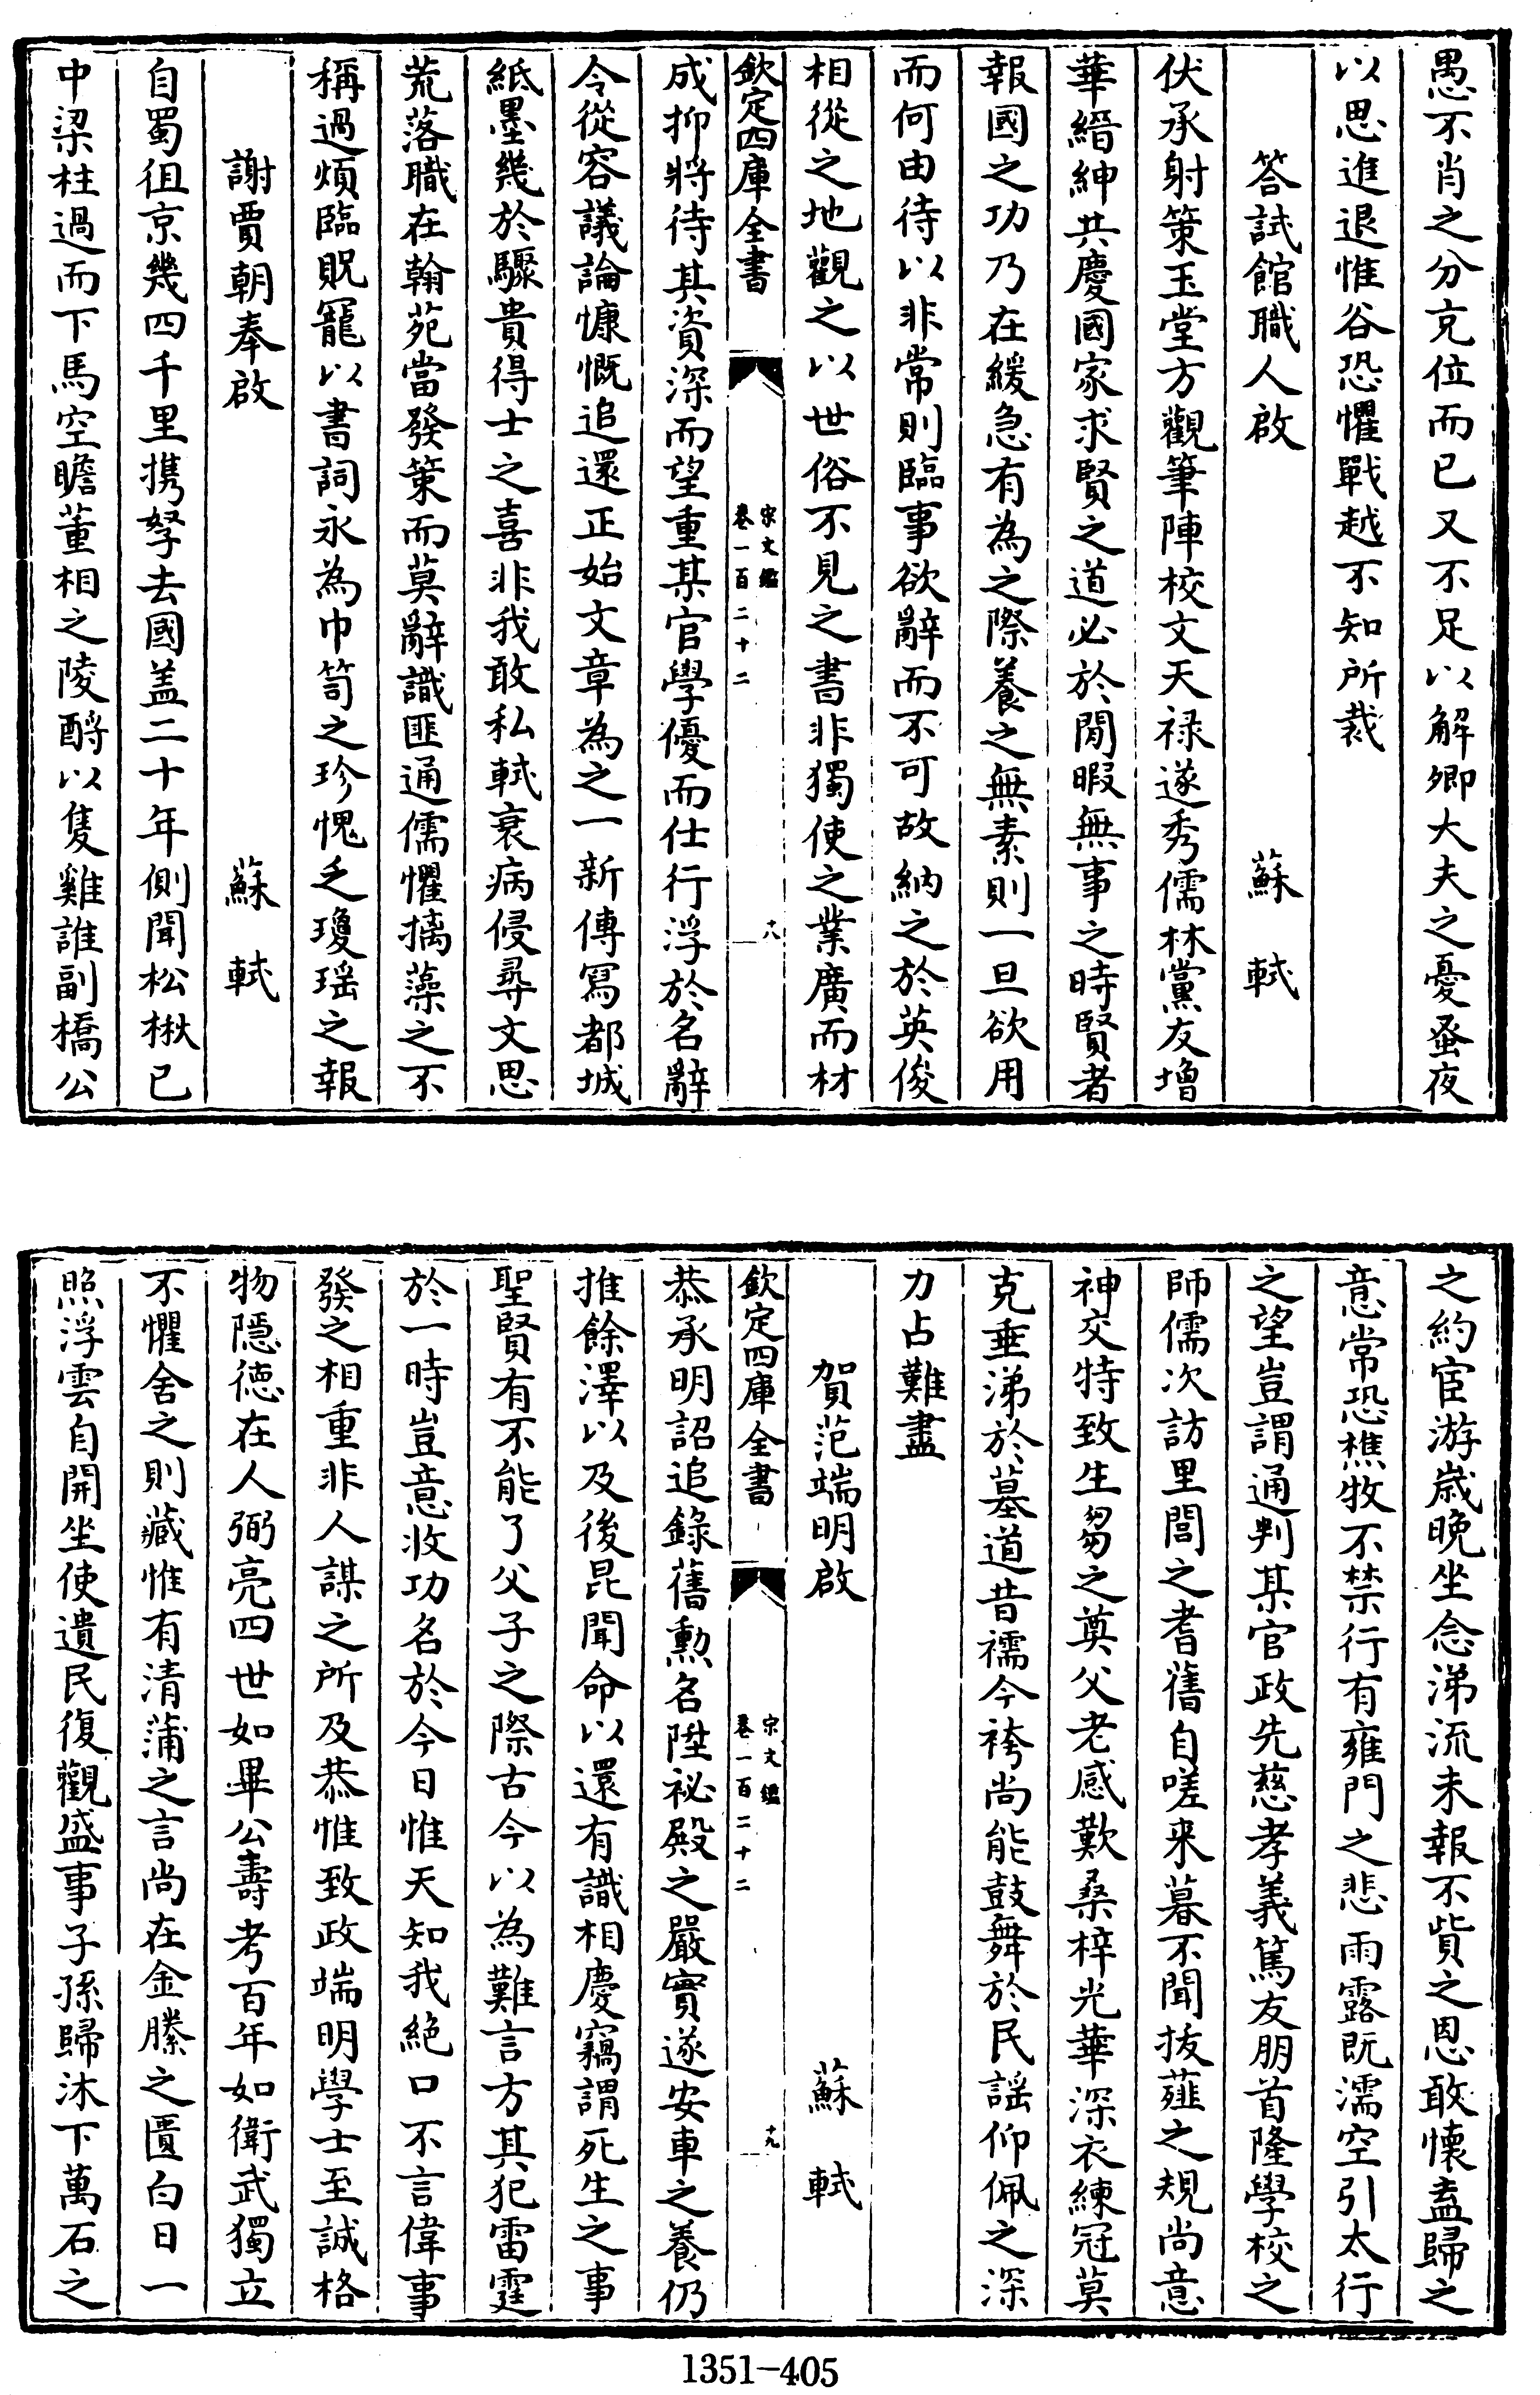 愚不肖之分充位而已又不足以解卿大夫之憂蚤夜
以思進退惟谷恐懼戰越不知所裁
答試館職人啟　蘇軾
伏承射策玉堂方觀筆陣校文天禄遂秀儒林黨友增
華縉紳共慶國家求賢之道必於閒暇無事之時賢者
報國之功乃在緩急有為之際養之無素則一旦欲用
而何由待以非常則臨事欲辭而不可故納之於英俊
相從之地觀之以世俗不見之書非獨使之業廣而材
欽定四庫全書　宋文鑑卷一百二十二　十八
成抑將待其資深而望重某官學優而仕行浮於名辭
令從容議論慷慨追還正始文章為之一新傳寫都城
紙墨幾於驟貴得士之喜非我敢私軾衰病侵尋文思
荒落職在翰苑當發策而莫辭識匪通儒懼摛藻之不
稱過煩臨貺寵以書詞永為巾笥之珍愧乏瓊瑶之報
謝賈朝奉啟　蘇軾
自蜀徂京幾四千里携孥去國盖二十年側聞松楸已
中梁柱過而下馬空瞻董相之陵酹以隻雞誰副橋公
之約宦游嵗晚坐念涕流未報不貲之恩敢懷盍歸之
意常恐樵牧不禁行有雍門之悲雨露既濡空引太行
之望豈謂通判某官政先慈孝義篤友朋首隆學校之
師儒次訪里閭之耆舊自嗟来暮不聞拔薤之規尚意
神交特致生芻之奠父老感歎桑梓光華深衣練冠莫
克垂涕於墓道昔襦今袴尚能鼓舞於民謡仰佩之深
力占難盡
賀范端明啟　蘇軾
欽定四庫全書　宋文鑑卷一百二十二　十九
恭承明詔追錄舊勲名陞祕殿之嚴實遂安車之養仍
推餘澤以及後昆聞命以還有識相慶竊謂死生之事
聖賢有不能了父子之際古今以為難言方其犯雷霆
於一時豈意收功名於今日惟天知我絶口不言偉事
發之相重非人謀之所及恭惟致政端明學士至誠格
物隠徳在人弼亮四世如畢公壽考百年如衛武獨立
不懼舍之則藏惟有清蒲之言尚在金縢之匱白日一
照浮雲自開坐使遺民復觀盛事子孫歸沐下萬石之
1351-405